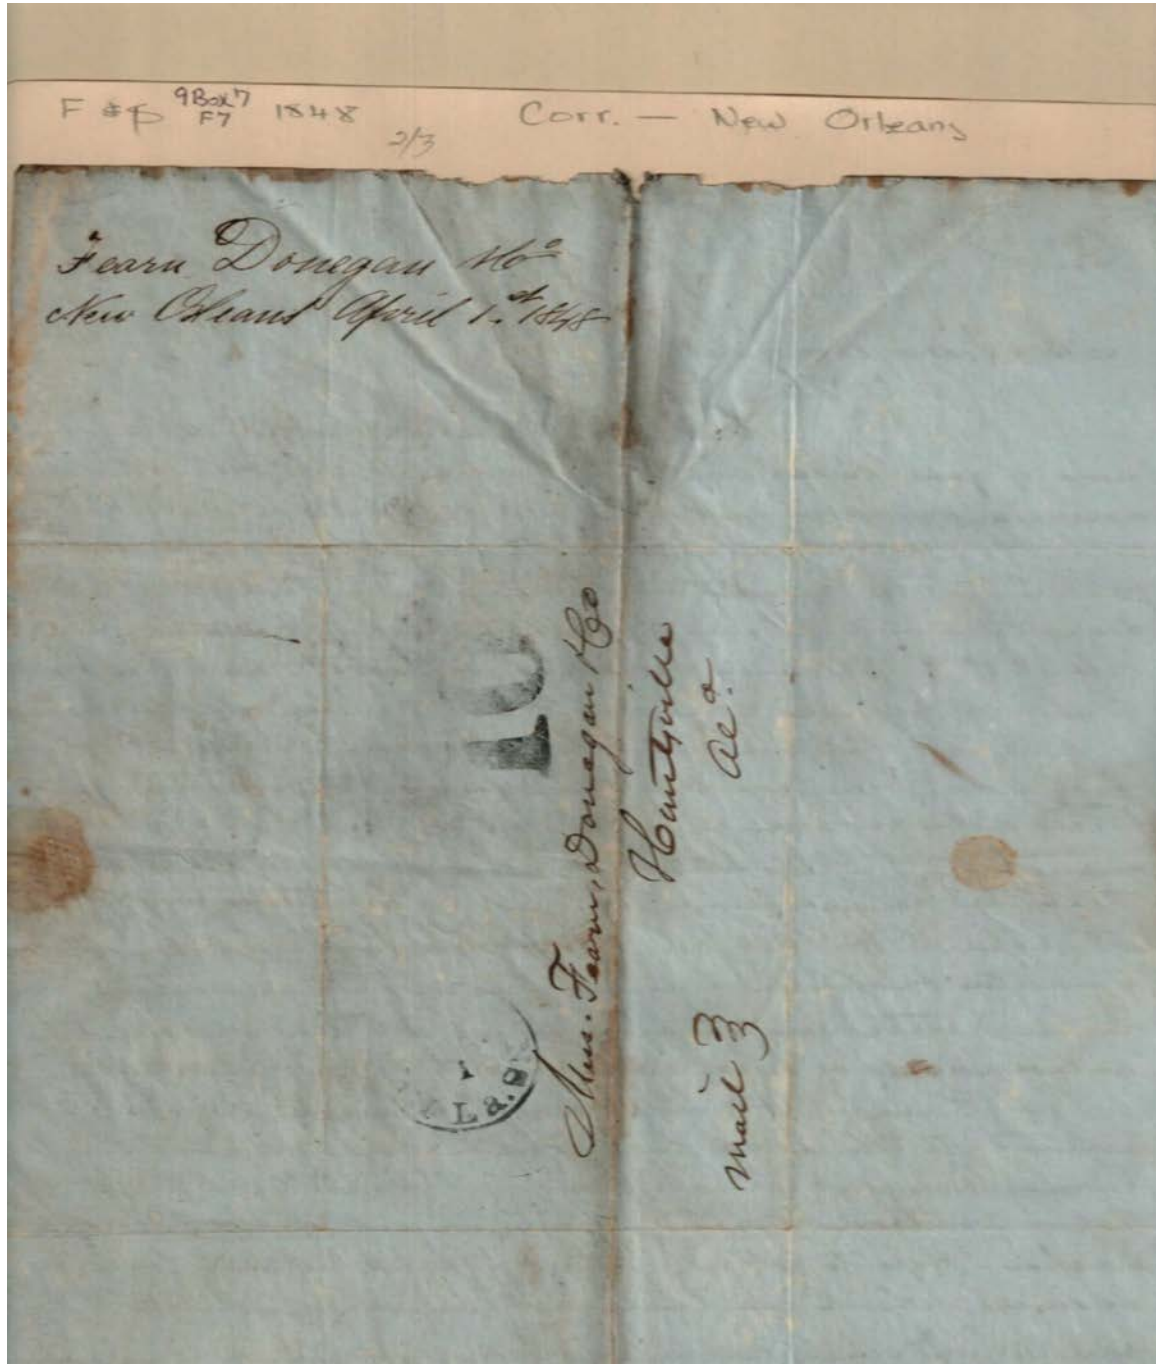 F & 9 Box 7 1848 Corr. — New Orleans
F7
2/3
Fearn Donegan & Co
New Orleans April 1st 1848
10
Mess. Fearn, Donegan & Co
Huntsville
Ala.
Mail 3
La.